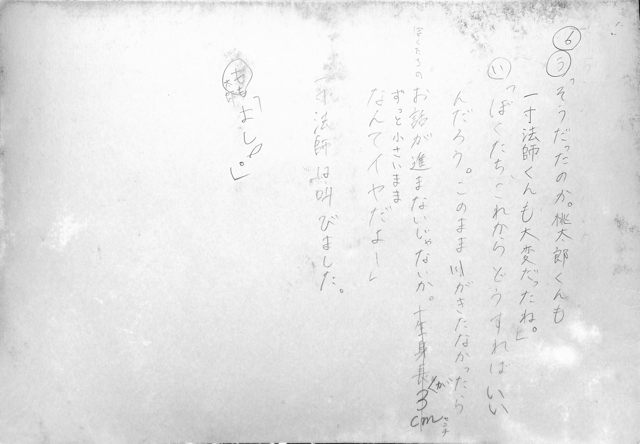 ⑥
う「そうだったのか。桃太郎くんも
一寸法師くんも大変だったね。」
い「ぼくたち、これからどうすればいい
んだろう。このまま川がきたなかったら
ぼくたちの
お話が進まないじゃないか。一生身長が3cm
センチ
ずっと小さいまま
なんてイヤだよー」
一寸法師は叫びました。
もも「よし。」